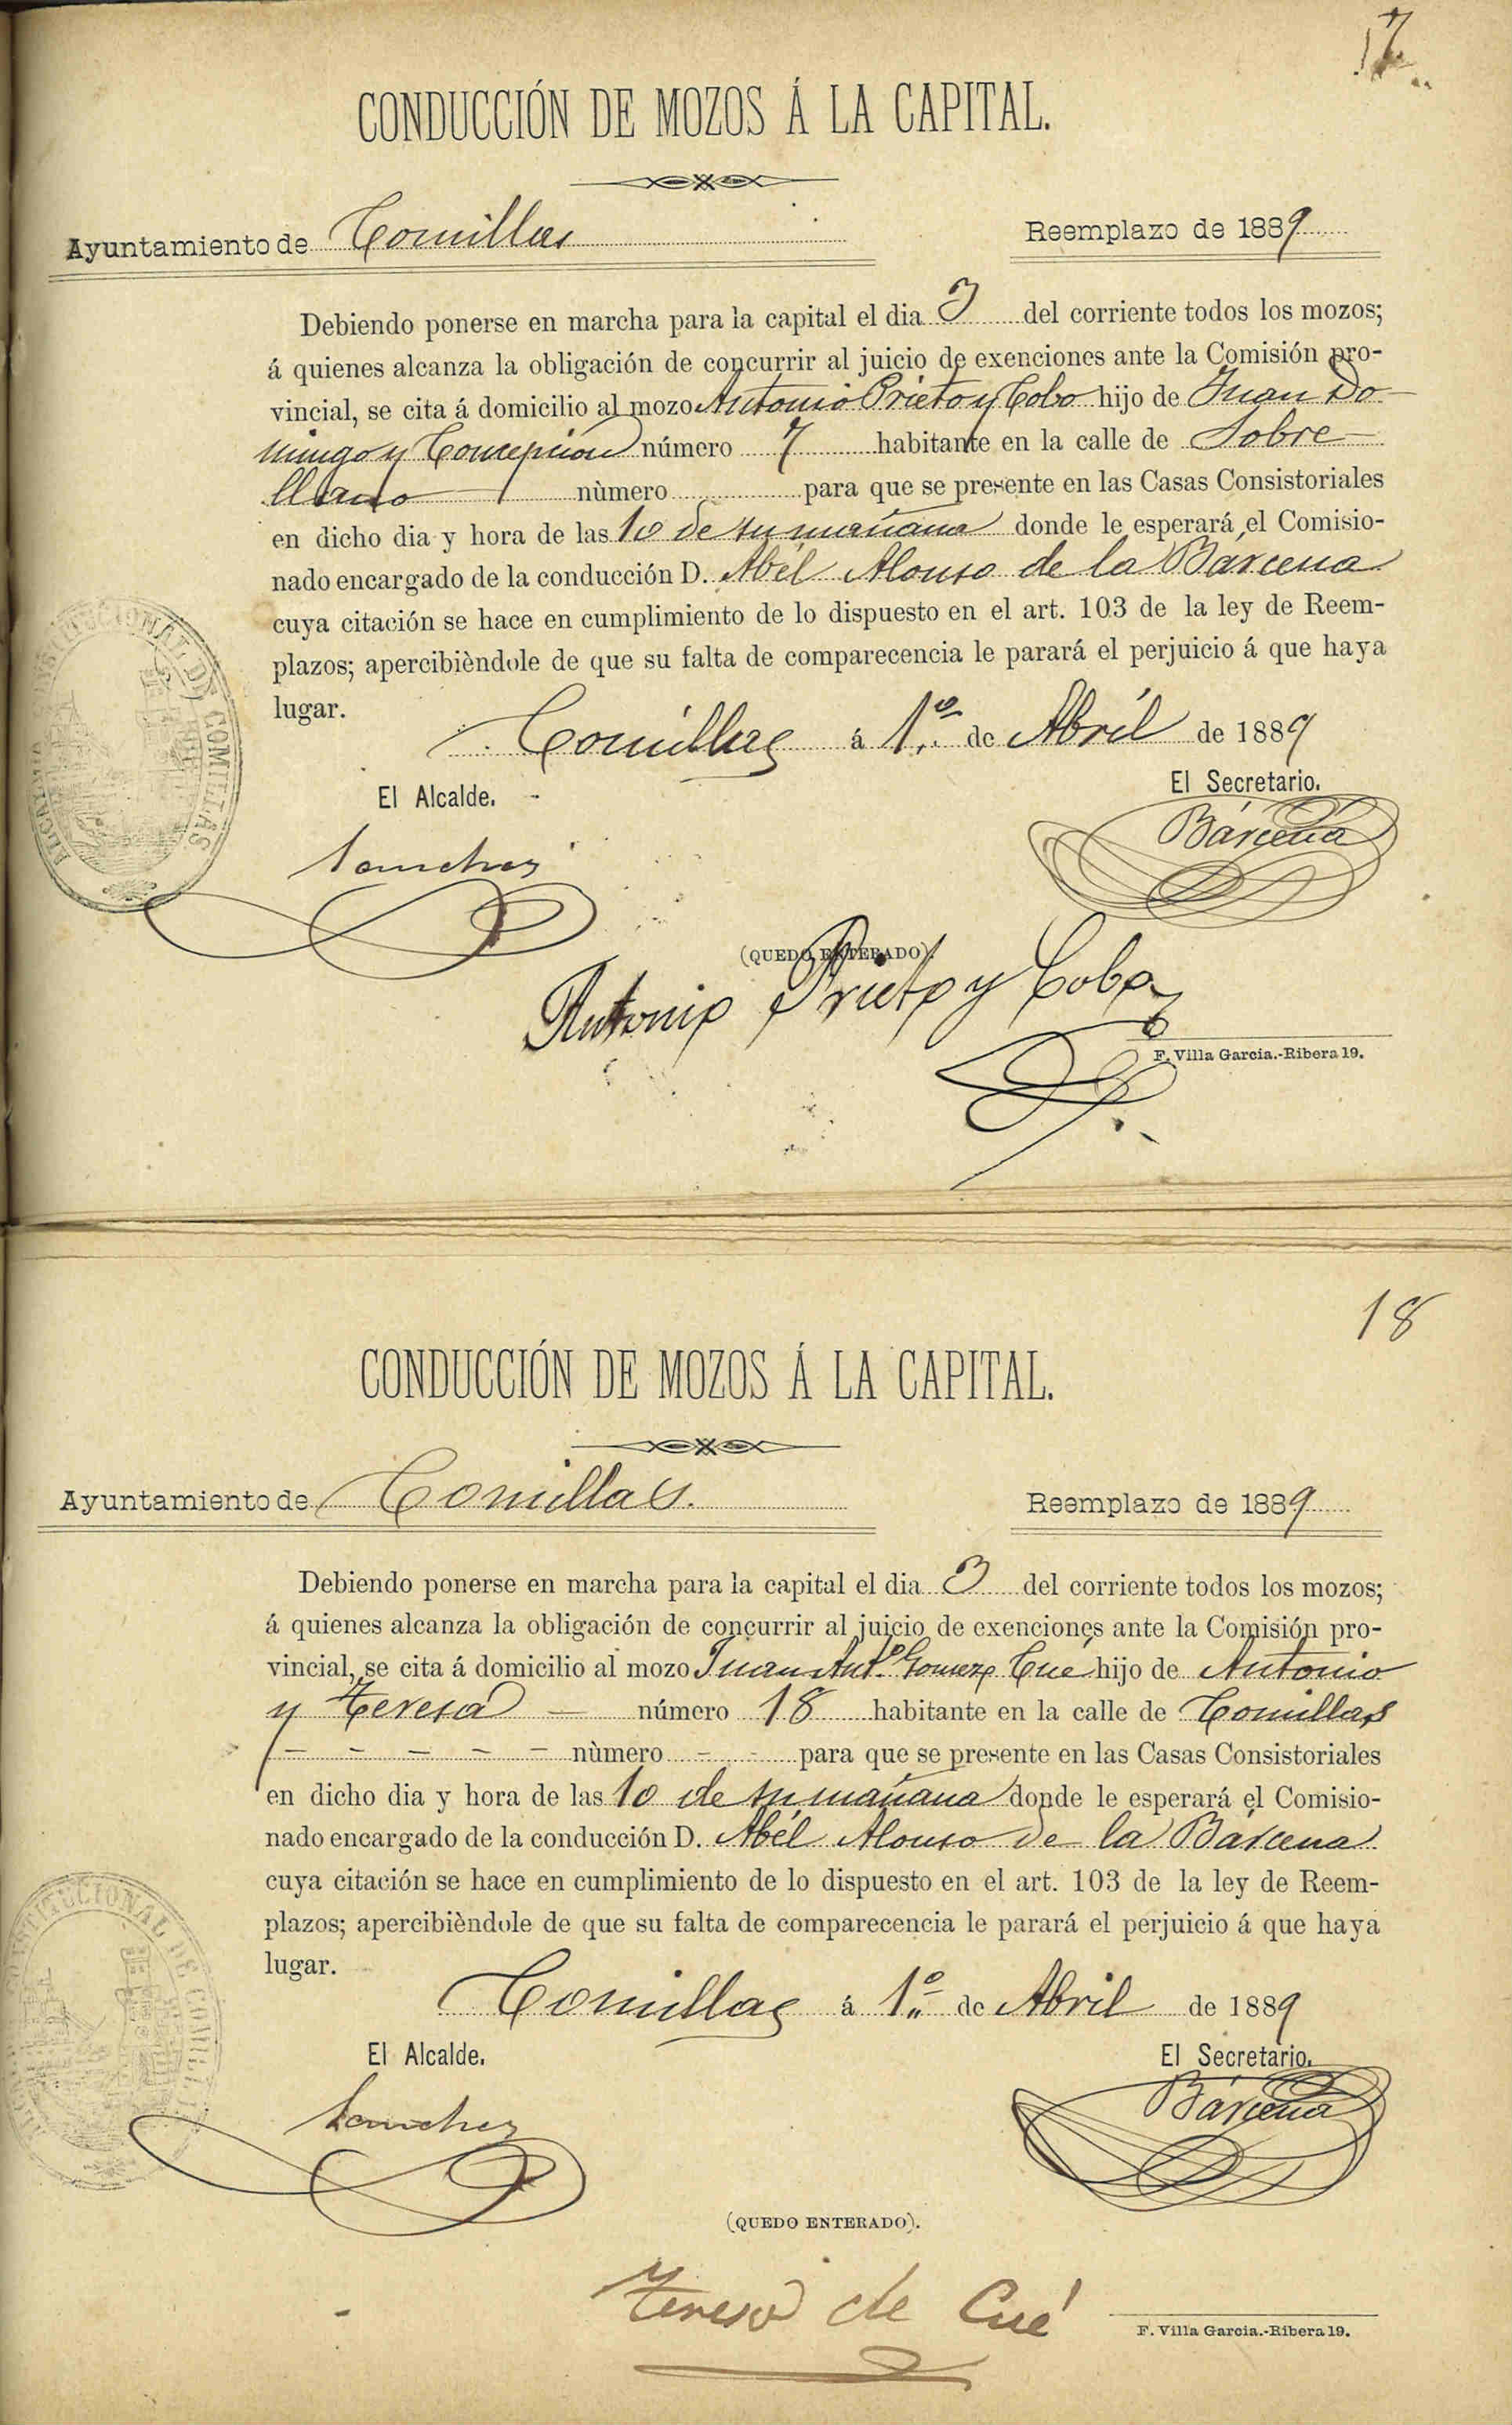 17
CONDUCCIÓN DE MOZOS Á LA CAPITAL.
Ayuntamiento de Comillas
Reemplazo de 1889
Debiendo ponerse en marcha para la capital el dia 3 del corriente todos los mozos;
á quienes alcanza la obligación de concurrir al juicio de exenciones ante la Comisión pro-
vincial, se cita á domicilio al mozo Antonio Prieto y Cobo hijo de Juan Do
mingo y Concepción número 7 habitante en la calle de Sobre
llano nùmero para que se presente en las Casas Consistoriales
en dicho dia y hora de las 10 de su mañana donde le esperará el Comisio-
nado encargado de la conducción D. Abél Alonso de la Bárcena
cuya citación se hace en cumplimiento de lo dispuesto en el art. 103 de la ley de Reem-
plazos; apercibièndole de que su falta de comparecencia le parará el perjuicio á que haya
lugar.
Comillas á 1.º de Abril de 1889
El Alcalde.
El Secretario.
Sanchez
Bárcena
CONSTITUCIONAL DE COMILLAS
ALCALDIA
(QUEDO ENTERADO).
Antonio Prieto y Cobo
F. Villa Garcia.-Ribera 19.
18
CONDUCCIÓN DE MOZOS Á LA CAPITAL.
Ayuntamiento de Comillas.
Reemplazo de 1889
Debiendo ponerse en marcha para la capital el dia 3 del corriente todos los mozos;
á quienes alcanza la obligación de concurrir al juicio de exenciones ante la Comisión pro-
vincial, se cita á domicilio al mozo Juan Antº. Gomez Cué hijo de Antonio
y Teresa — número 18 habitante en la calle de Comillas
- - - - - nùmero - - para que se presente en las Casas Consistoriales
en dicho dia y hora de las 10 de su mañana donde le esperará el Comisio-
nado encargado de la conducción D. Abél Alonso de la Bárcena
cuya citación se hace en cumplimiento de lo dispuesto en el art. 103 de la ley de Reem-
plazos; apercibièndole de que su falta de comparecencia le parará el perjuicio á que haya
lugar.
Comillas á 1.º de Abril de 1889
El Alcalde.
El Secretario.
Sanchez
Bárcena
CONSTITUCIONAL DE COMILLAS
(QUEDO ENTERADO).
Teresa de Cué
F. Villa Garcia.-Ribera 19.